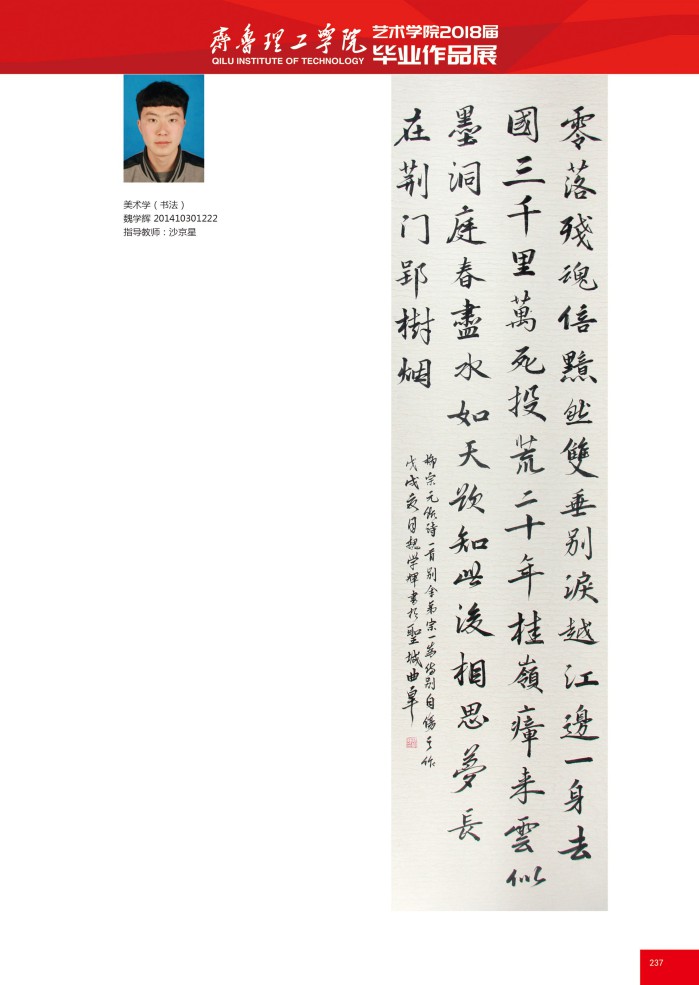 齊魯理工學院
QILU INSTITUTE OF TECHNOLOGY
艺术学院2018届
毕业作品展
美术学（书法）
魏学辉 201410301222
指导教师：沙京星
零落殘魂倍黯然雙垂別淚越江邊一身去
國三千里萬死投荒二十年桂嶺瘴来雲似
墨洞庭春盡水如天欲知此後相思夢長
在荆门郢樹烟
柳宗元詩一首別舍弟宗一為別自傷之作
戊戌夏月魏学輝書於聖城曲阜
237